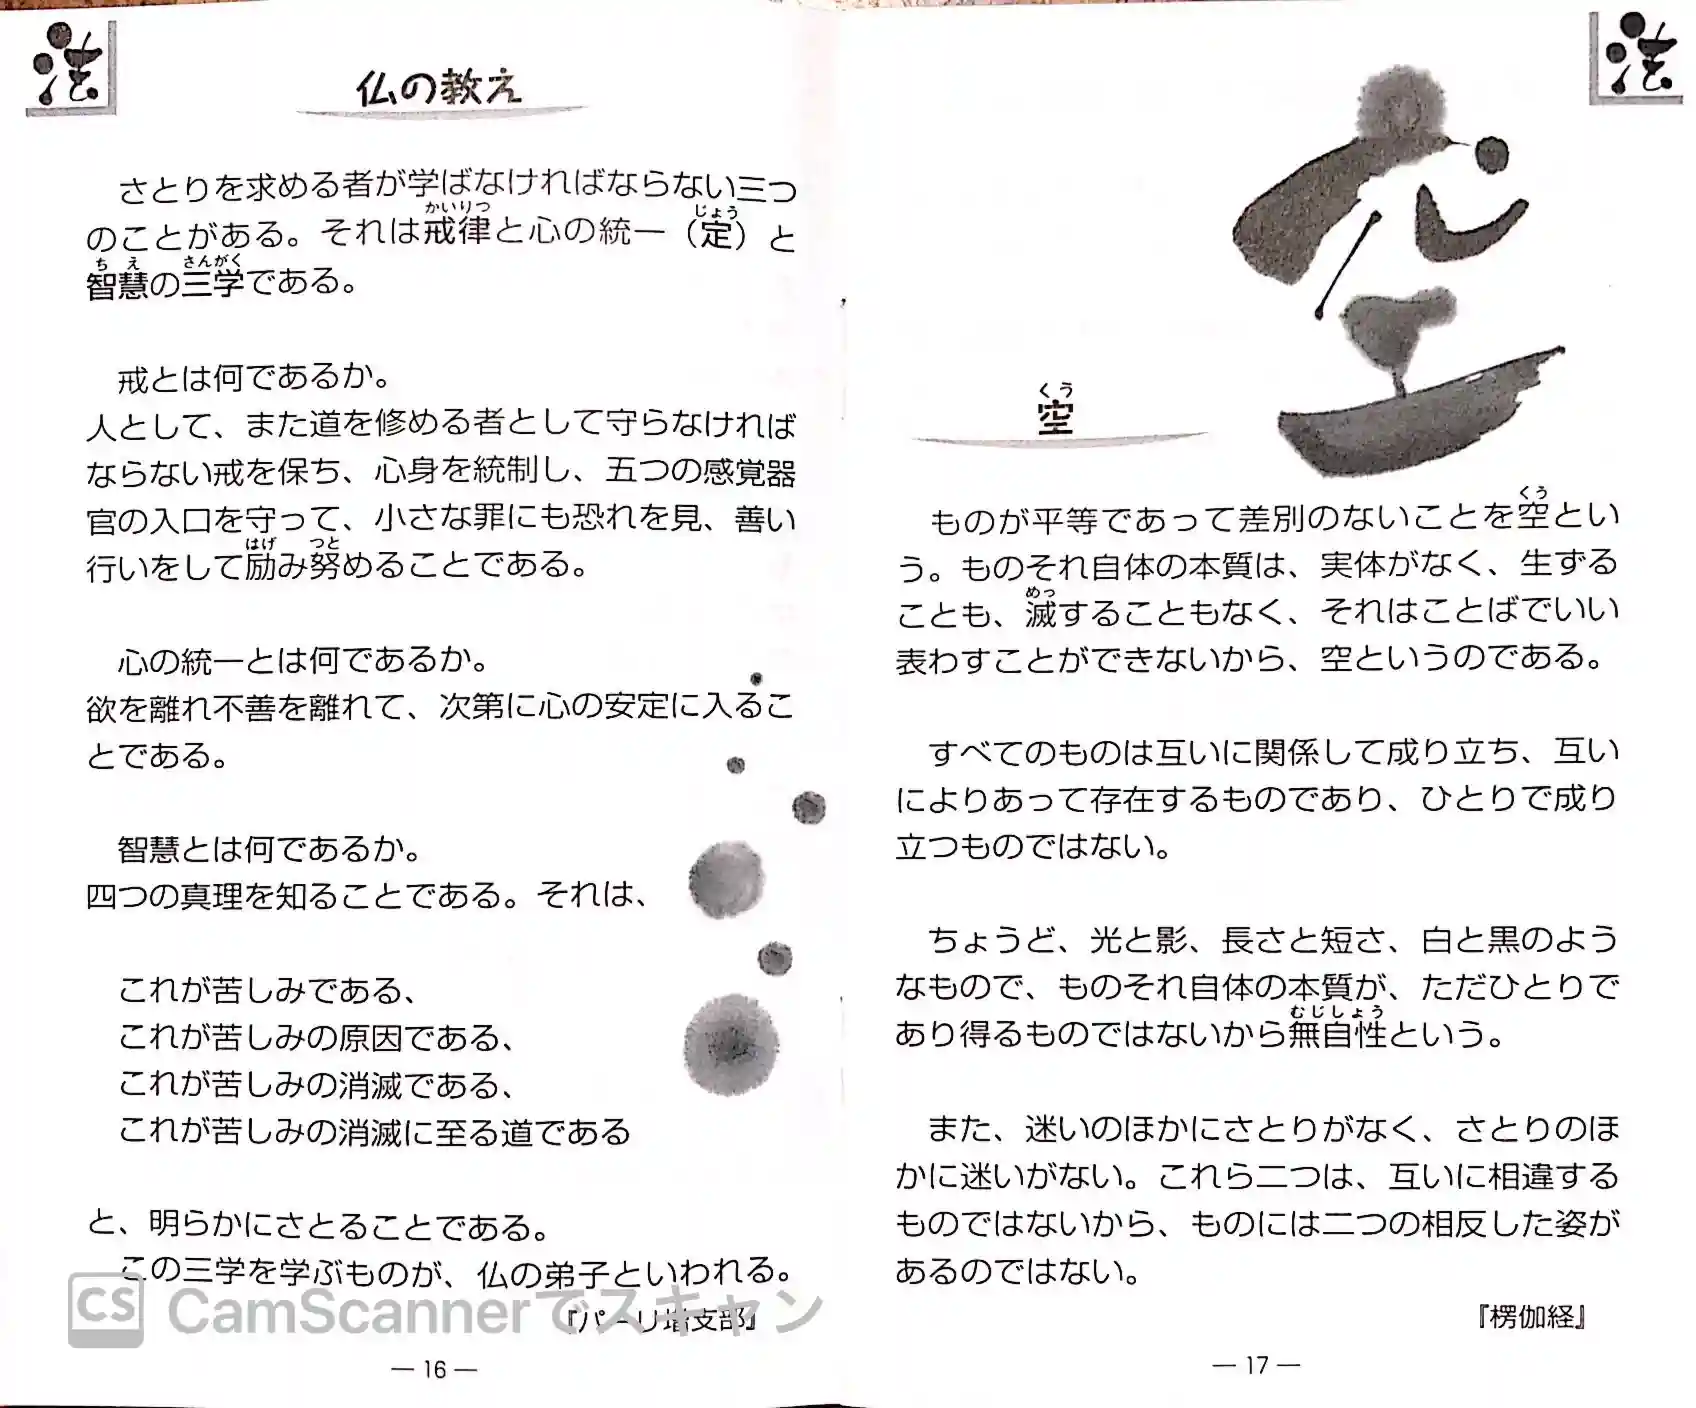 法
仏の教え
さとりを求める者が学ばなければならない三つ
のことがある。それは戒律と心の統一（定）と
智慧の三学である。
戒とは何であるか。
人として、また道を修める者として守らなければ
ならない戒を保ち、心身を統制し、五つの感覚器
官の入口を守って、小さな罪にも恐れを見、善い
行いをして励み努めることである。
心の統一とは何であるか。
欲を離れ不善を離れて、次第に心の安定に入るこ
とである。
智慧とは何であるか。
四つの真理を知ることである。それは、
これが苦しみである、
これが苦しみの原因である、
これが苦しみの消滅である、
これが苦しみの消滅に至る道である
と、明らかにさとることである。
この三学を学ぶものが、仏の弟子といわれる。
『パーリ増支部』
CS CamScannerでスキャン
— 16 —
法
空
空
ものが平等であって差別のないことを空とい
う。ものそれ自体の本質は、実体がなく、生ずる
ことも、滅することもなく、それはことばでいい
表わすことができないから、空というのである。
すべてのものは互いに関係して成り立ち、互い
によりあって存在するものであり、ひとりで成り
立つものではない。
ちょうど、光と影、長さと短さ、白と黒のよう
なもので、ものそれ自体の本質が、ただひとりで
あり得るものではないから無自性という。
また、迷いのほかにさとりがなく、さとりのほ
かに迷いがない。これら二つは、互いに相違する
ものではないから、ものには二つの相反した姿が
あるのではない。
『楞伽経』
— 17 —